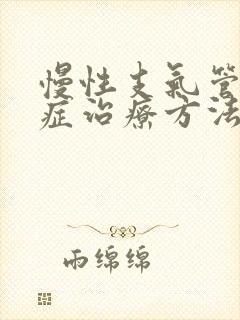 慢性支气管
症治疗方法
雨绵绵